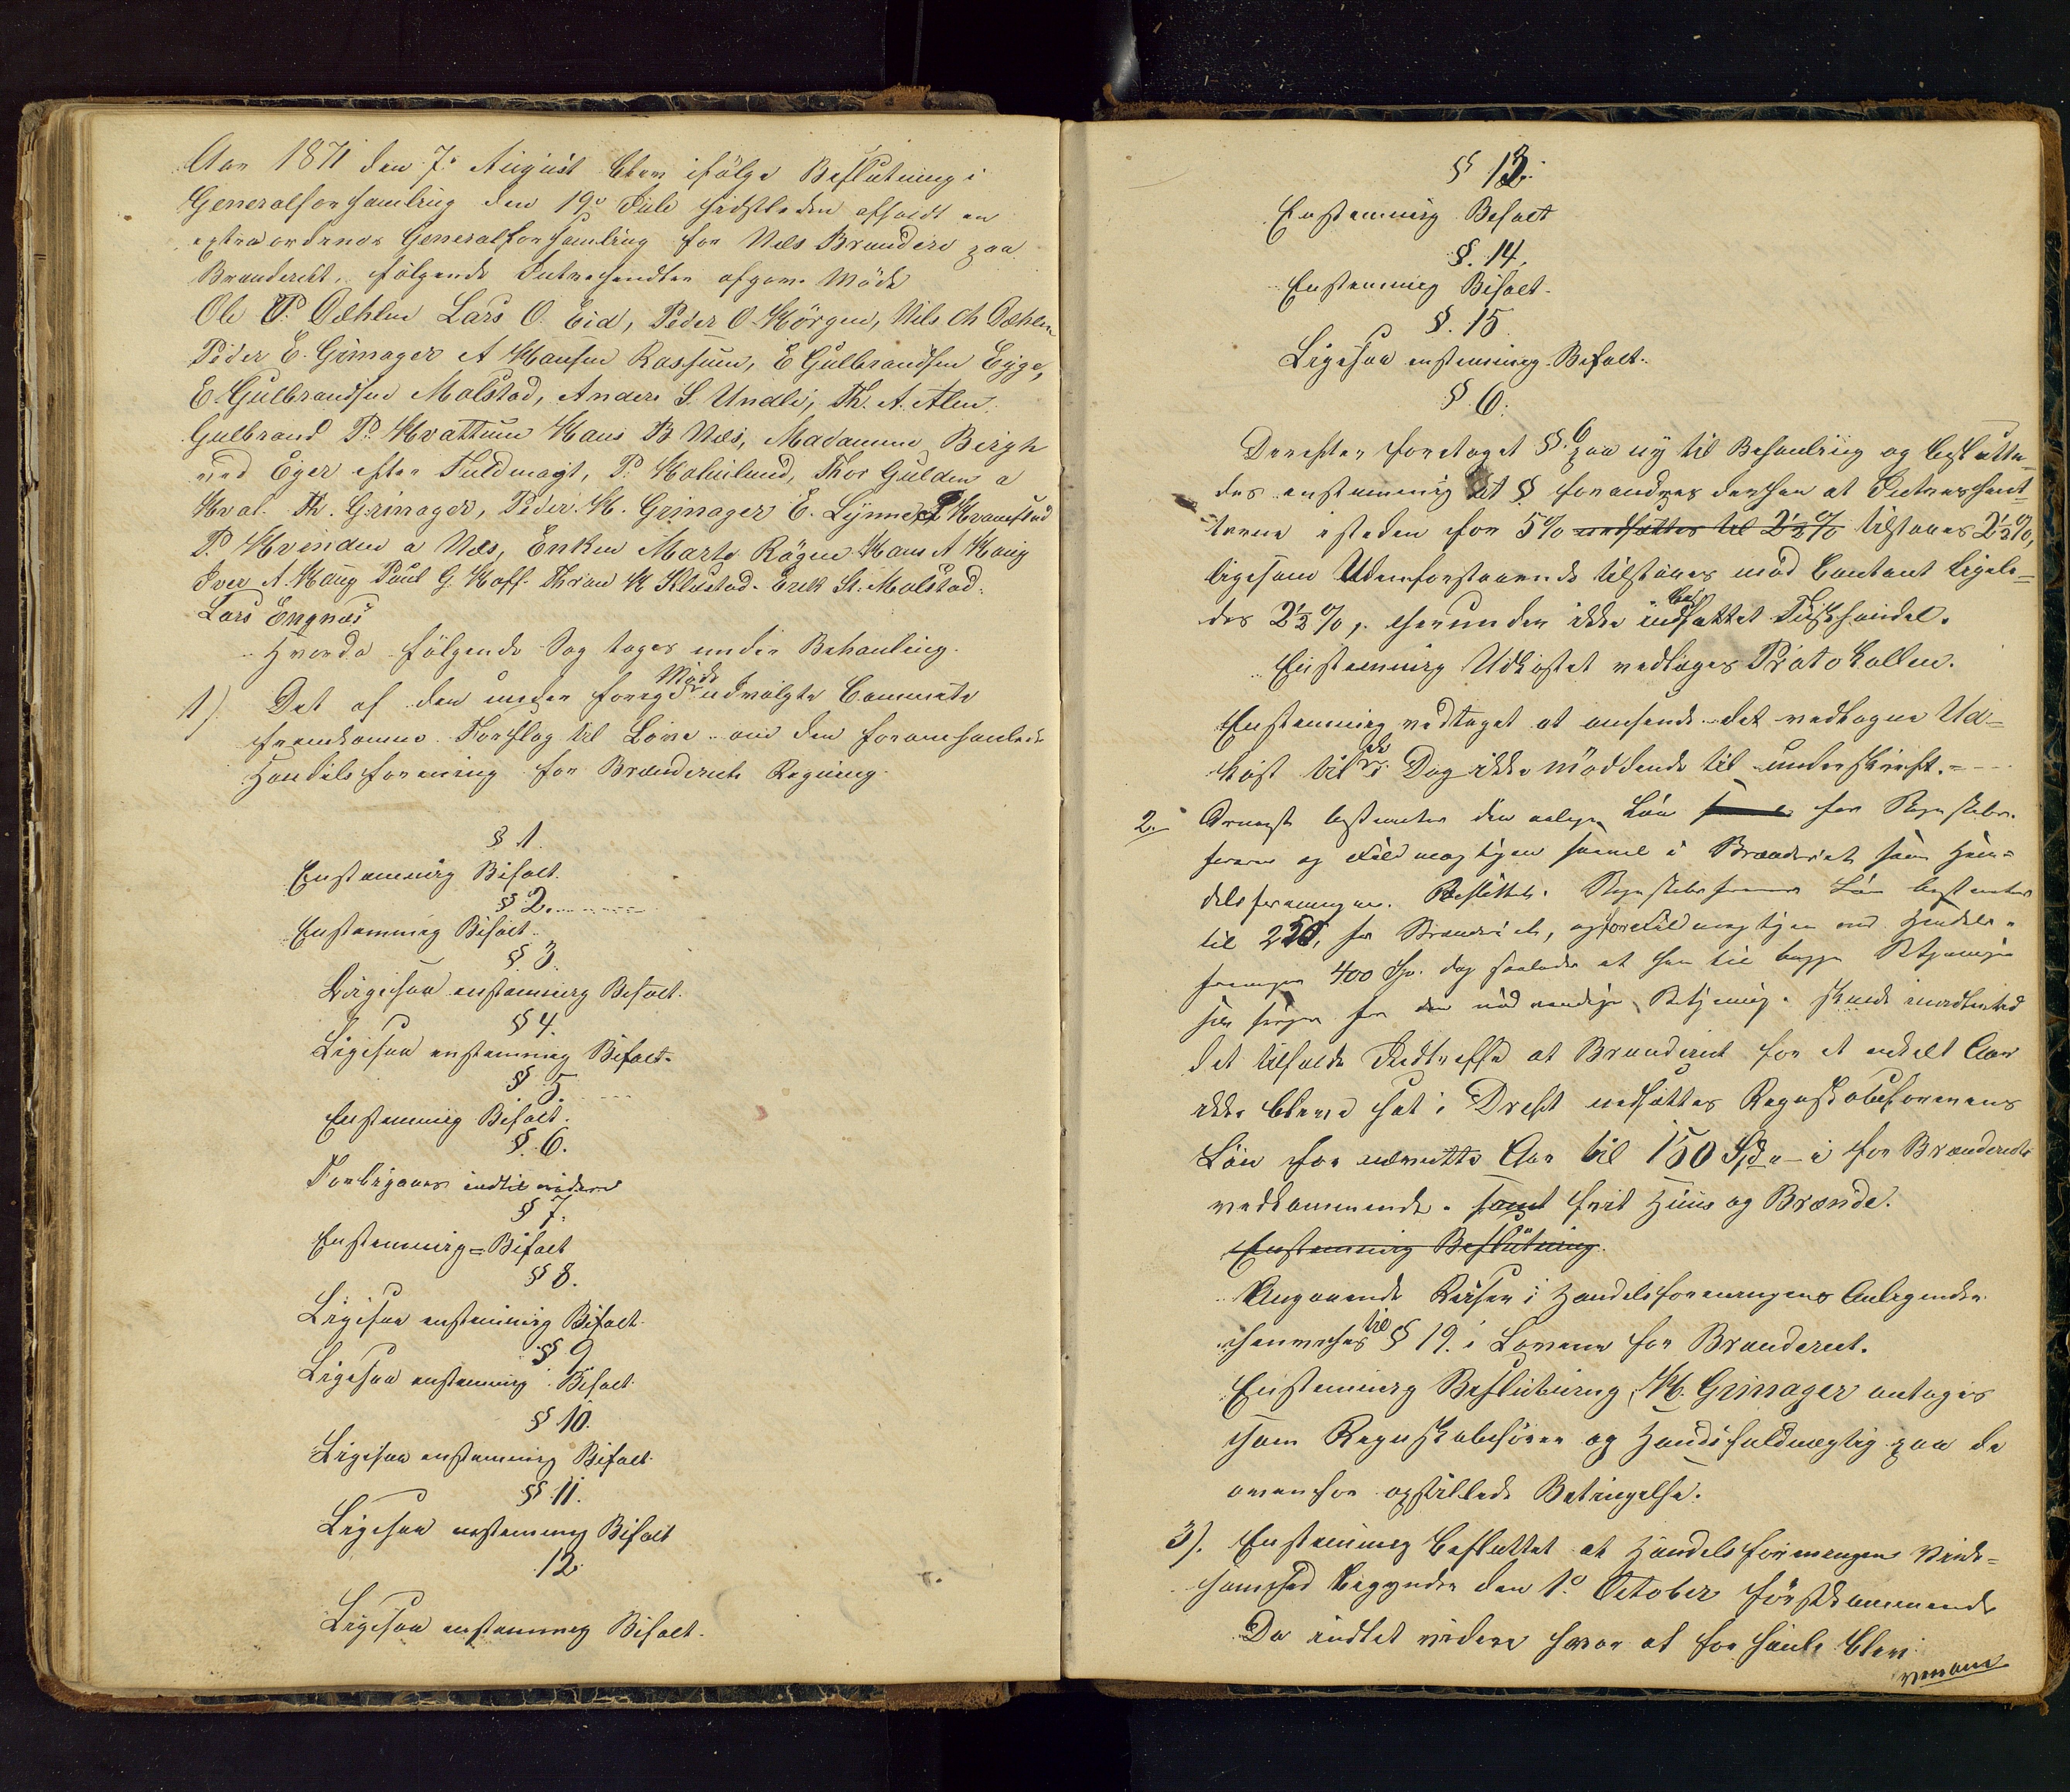 Aar 1871 den 7de August blev ifölge Beslutning i
Generalforsamling den 19de Juli sidstleden afholdt en
extraordenær Generalforsamling for Næs Brænderi paa
Brænderiet. følgende Interesendter afgave Möde
Ole P. Dæhlen Lars O. Eid, Peder O Hörgen, Nils Ch Dæhlen
Peder E. Grimager A Hansen Rassum, E Gulbrandsen Egge,
E. Gulbrandsen Molstad, Anders S. Undli, Th. A. Alm
Gulbrand P. Kvattum Hans B Næs, Madamme Bergh
ved Eger efter Fuldmagt, P. Holmlund, Thor Gulden a
Hval. Th. Grimager, Peder. H. Grimager E. Lynne P Hvamstad
P. Hvinden a Næs, Enken Marte Rögne Hans A Haug
Iver A. Haug Paul G. Hoff. Thron H Klæstad. Erik St. Molstad.
Lars Engnæs
Hvorda følgende Sag toges under Behanling.
1) Det af den under forrige Möde udvalgte Commite
fremkomne Forslag til Love om den foromhanlede
Handelsforening for Brænderiets Regning.
§ 1.
Enstemmig Bifalt.
§ 2.
Enstemmig Bifalt.
§. 3.
Ligesaa enstemmig Bifalt.
§ 4.
Ligesaa enstemmig Bifalt.
§ 5.
Enstemmig Bifalt.
§. 6.
Forbigaaes indtil videre
§ 7.
Enstemmig Bifalt
§ 8.
Ligesaa enstemmig Bifalt.
§ 9
Ligesaa enstemmig Bifalt.
§ 10.
Ligesaa enstemmig Bifalt.
§ 11.
Ligesaa enstemmig Bifalt
12
Ligesaa enstemmig Bifalt.
§ 13.
Enstemmig Bifalt
§. 14.
Enstemmig Bifalt.
§. 15
Ligesaa enstemmig Bifalt.
§ 6.
Derefter foretaget §. 6 paa ny til Behanling og besluttedes
enstemmig at § forandres derhen at Interessent=
terne isteden for 5% nedsættes til 2½% tilstaaes 2½%,
ligesom Udenforstaaende tilstaaes mod Contant ligele=
des 2½%, herunder ikke indbefattet Tuskhandel.
Enstemmig Udkastet vedtages Protokollen.
Enstemmig vedtaget at omsende det vedtagne Ud=
kast til de i Dag ikke möddende til underskrift.
2. Dernæst bestemtes den aarlige Lön for Regnskabs-
fører og Fuldmægtigen saavel i Brænderiet som Han=
delsforeningen. Besluttet. Regnskabsførerens Lön bestemtes
til 250, for Brænderiet, og for Fuldmægtigen ved Handels-
foreningen 400 Spd. dog saaledes at han til begge
selv sørger for den nödvendige Betjening. Skulde imidlertid
det tilfælde Indtræffe at Brænderiet for et enkelt Aar
ikke bleve sat i Drift nedsættes Regnskabsførerens
Lön for nævnte Aar til 150 Spd for Brænderiets
vedkommende. samt frit Huus og Brænde.
Enstemmig Beslutning.
Angaaende Reiser i Handelsforeningens Anligender
henvises til § 19. i Lovene for Brænderiet.
Enstemmig Beslutning, H. Grimager antages
som Regnskabsfører og Handsfuldmægtig paa de
ovenfor opstillede Betingelse.
3). Enstemmig besluttet at Handelsforeningens Virk=
somhed begynder den 1ste October førstkommende
Da indtet videre var at forhanle blev